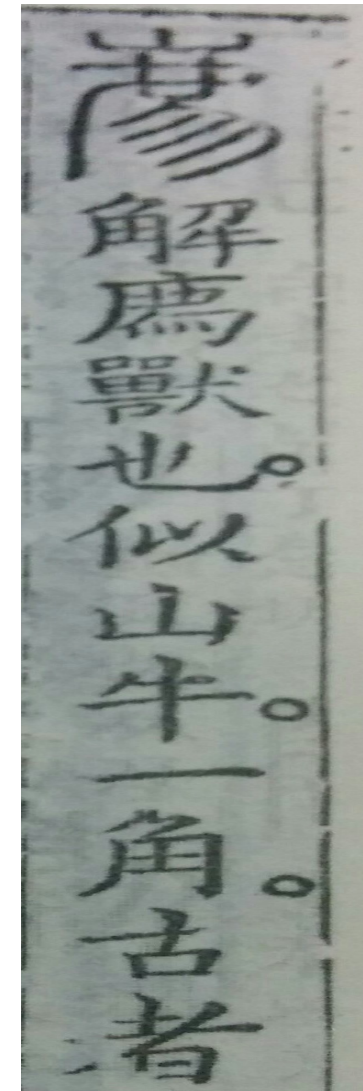 廌解廌獸也。似山牛。一角。古者